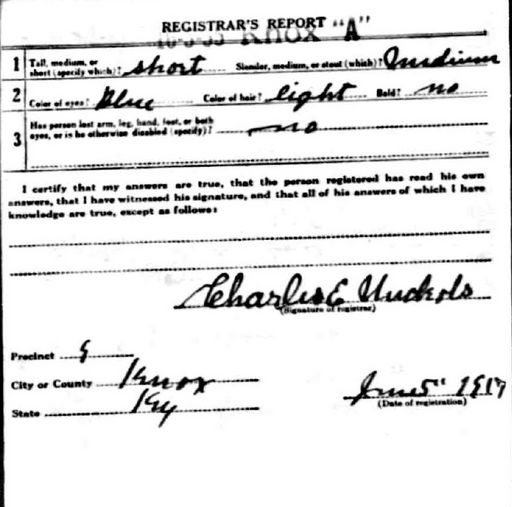 REGISTRAR'S REPORT "A"
16-3-35 KNOX
1 Tall, medium, or short (specify which)? short Slender, medium, or stout (which)? Medium
2 Color of eyes? Blue Color of hair? light Bald? no
3 Has person lost arm, leg, hand, foot, or both eyes, or is he otherwise disabled (specify)? no
I certify that my answers are true, that the person registered has read his own
answers, that I have witnessed his signature, and that all of his answers of which I have
knowledge are true, except as follows:
Charlie E Nuckols
(Signature of registrar)
Precinct 9
City or County Knox
State Ky
June 5" 1917
(Date of registration)